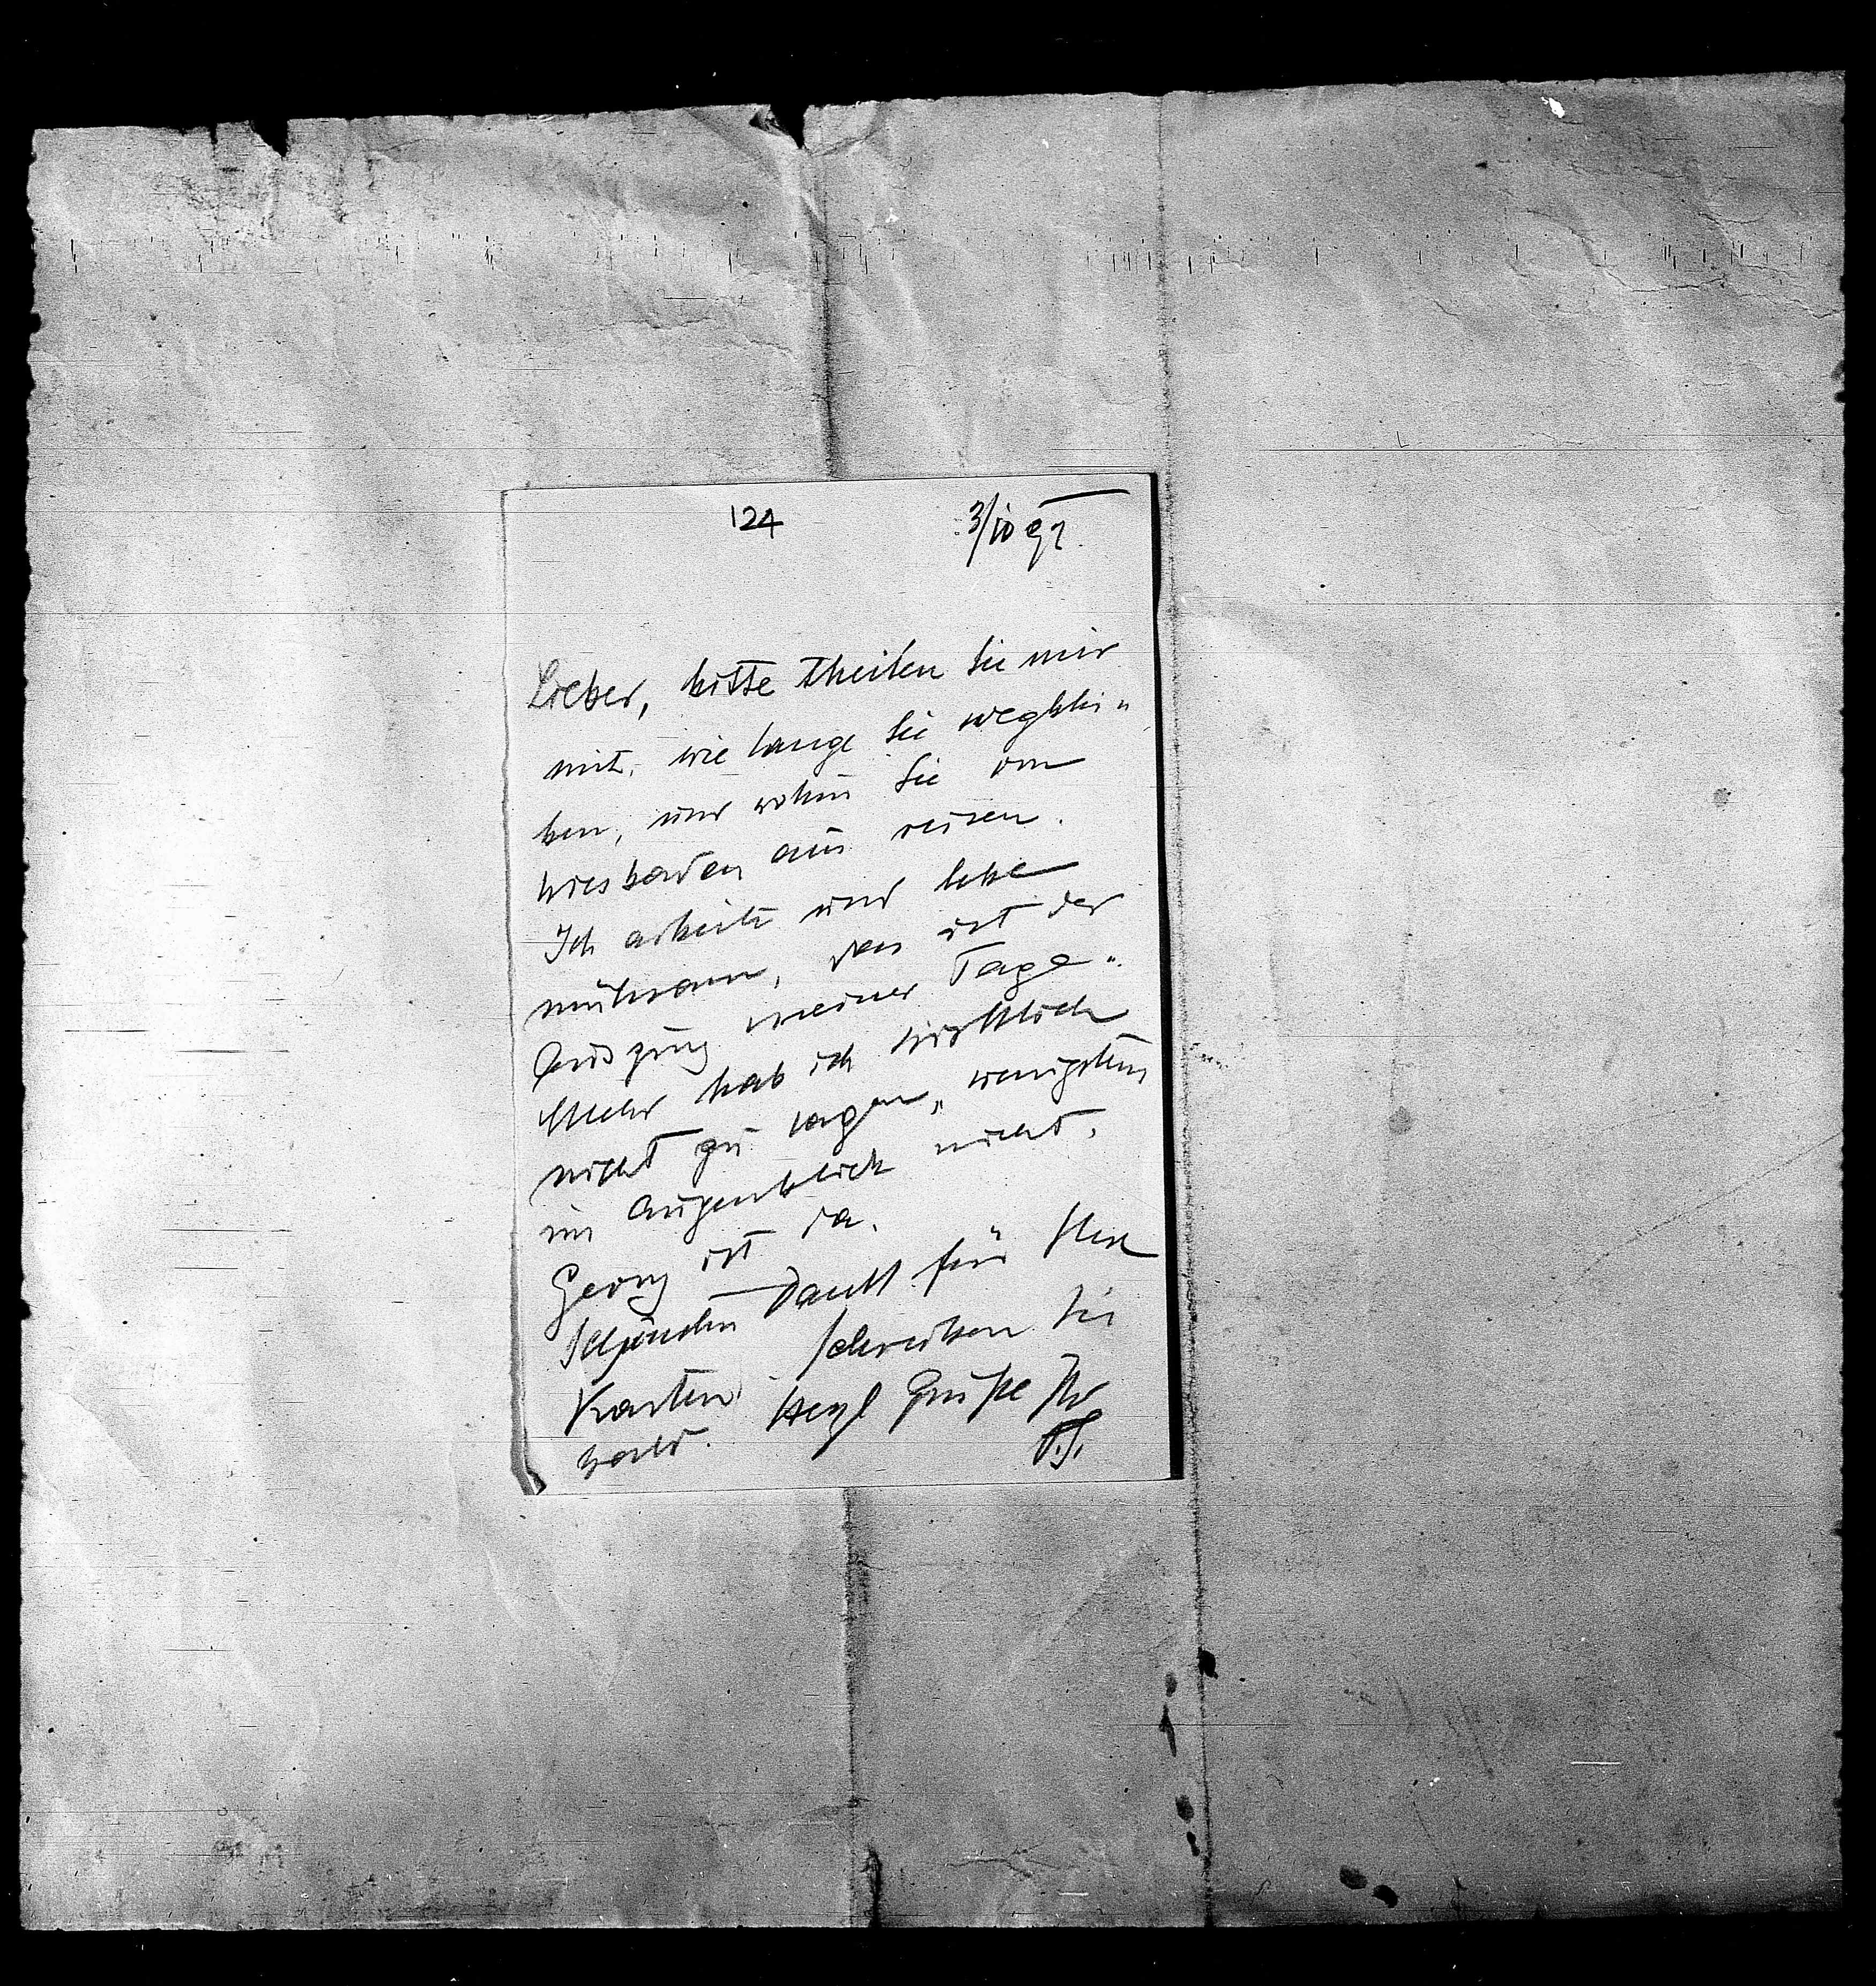 124
3/10 97
Lieber, bitte theilen Sie mir
mit, wie lange Sie wegblei-
ben, und wohin Sie von
Wiesbaden aus reisen.
Ich arbeite und lebe
mühsam, das ist der
Auszug meiner Tage.
Mehr hab ich wirklich
nicht zu sagen, wenigstens
im Augenblick nicht.
Georg ist da.
Schönsten Dank für Ihre
Karten. Schreiben Sie
bald. Herzl Grüße Ihr